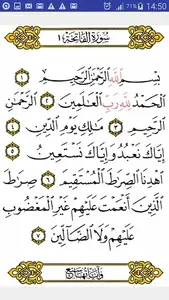 71% 14:50
سورة الفاتحة ١
بِسْمِ ٱللَّهِ ٱلرَّحْمَٰنِ ٱلرَّحِيمِ ١
ٱلْحَمْدُ لِلَّهِ رَبِّ ٱلْعَٰلَمِينَ ٢ ٱلرَّحْمَٰنِ
ٱلرَّحِيمِ ٣ مَٰلِكِ يَوْمِ ٱلدِّينِ ٤
إِيَّاكَ نَعْبُدُ وَإِيَّاكَ نَسْتَعِينُ ٥
ٱهْدِنَا ٱلصِّرَٰطَ ٱلْمُسْتَقِيمَ ٦ صِرَٰطَ
ٱلَّذِينَ أَنْعَمْتَ عَلَيْهِمْ غَيْرِ ٱلْمَغْضُوبِ
عَلَيْهِمْ وَلَا ٱلضَّآلِّينَ ٧